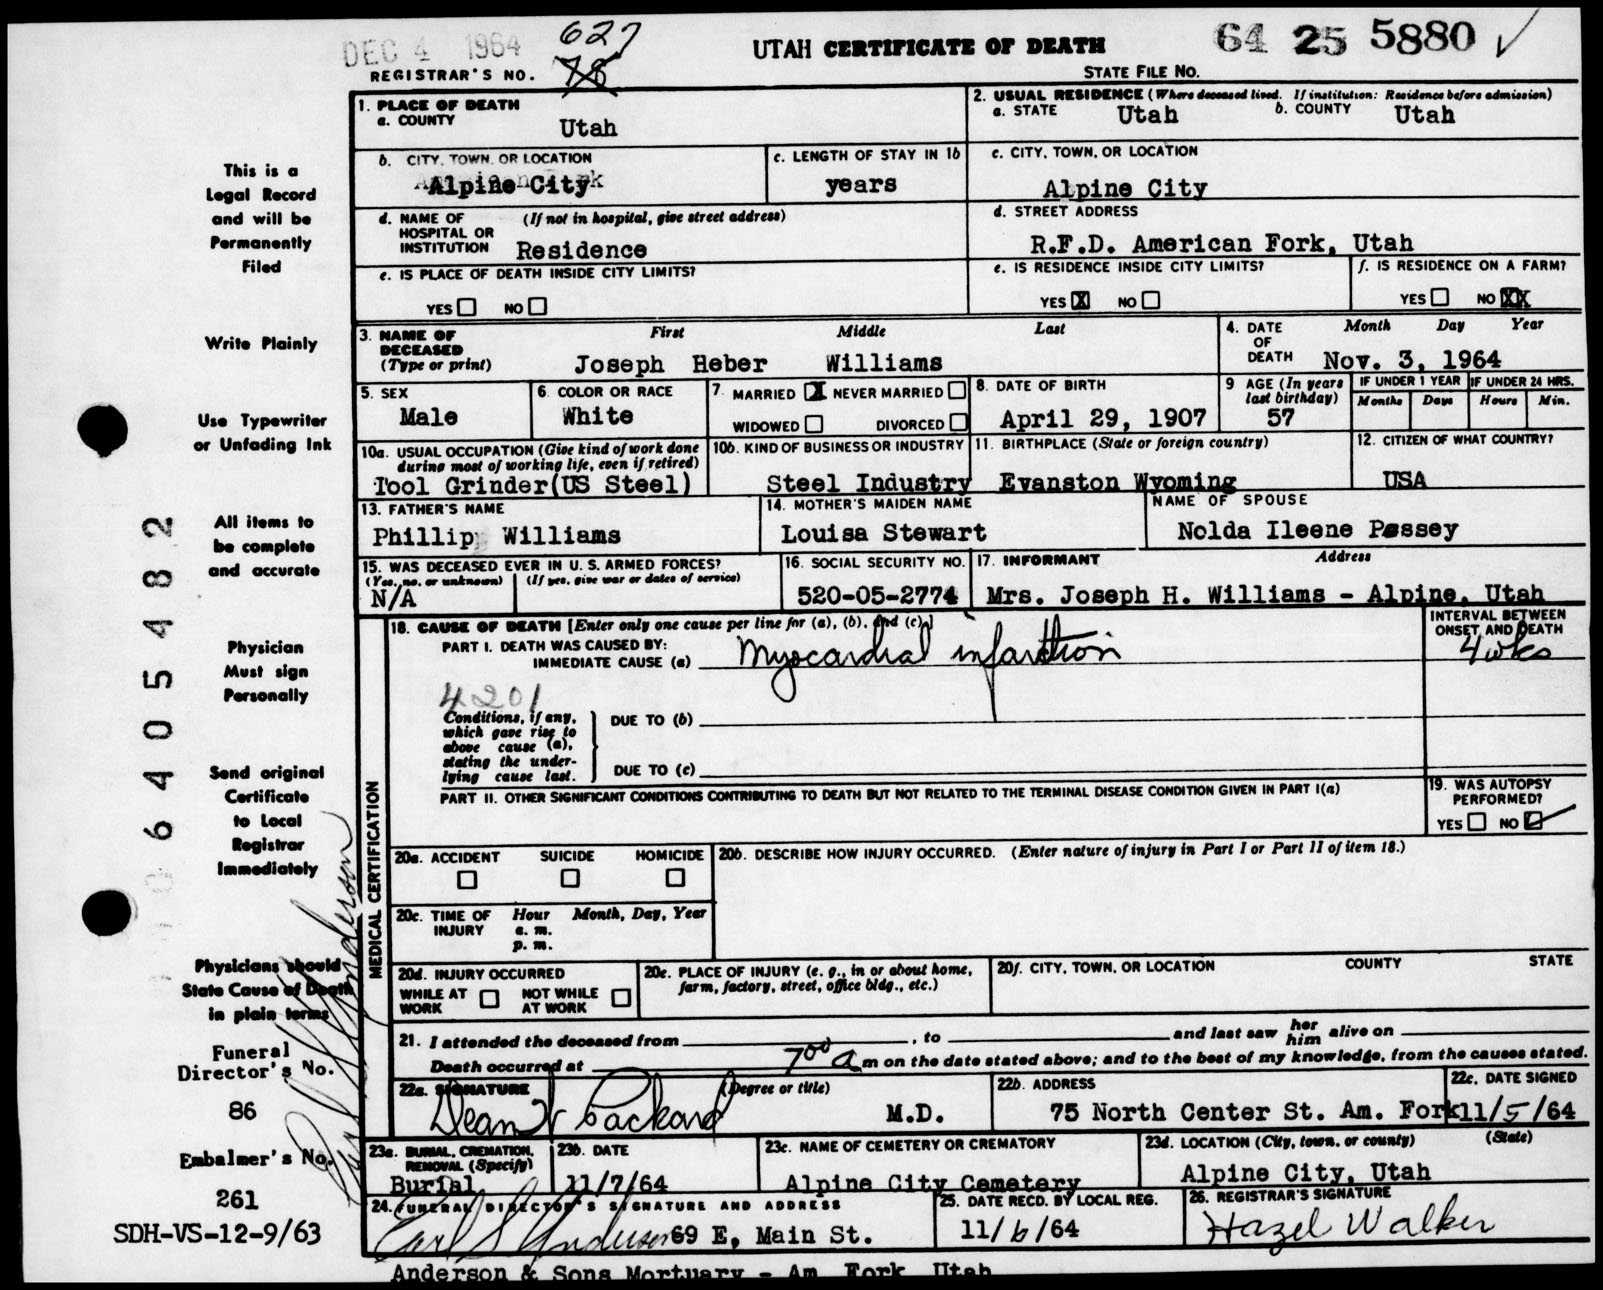 DEC 4 1964
627
78
UTAH CERTIFICATE OF DEATH
64 25 5880 ✓
REGISTRAR'S NO.
STATE FILE No.
1. PLACE OF DEATH
a. COUNTY
Utah
2. USUAL RESIDENCE (Where deceased lived. If institution: Residence before admission)
a. STATE Utah b. COUNTY Utah
b. CITY, TOWN, OR LOCATION
Alpine City
c. LENGTH OF STAY IN 1b
years
c. CITY, TOWN, OR LOCATION
Alpine City
d. NAME OF HOSPITAL OR INSTITUTION (If not in hospital, give street address)
Residence
d. STREET ADDRESS
R.F.D. American Fork, Utah
e. IS PLACE OF DEATH INSIDE CITY LIMITS?
YES ☐ NO ☐
e. IS RESIDENCE INSIDE CITY LIMITS?
YES ☒ NO ☐
f. IS RESIDENCE ON A FARM?
YES ☐ NO XX
3. NAME OF DECEASED (Type or print)
First Middle Last
Joseph Heber Williams
4. DATE OF DEATH
Month Day Year
Nov. 3, 1964
5. SEX
Male
6. COLOR OR RACE
White
7. MARRIED ☒ NEVER MARRIED ☐
WIDOWED ☐ DIVORCED ☐
8. DATE OF BIRTH
April 29, 1907
9 AGE (In years last birthday)
57
IF UNDER 1 YEAR
Months Days
IF UNDER 24 HRS.
Hours Min.
10a. USUAL OCCUPATION (Give kind of work done during most of working life, even if retired)
Tool Grinder(US Steel)
10b. KIND OF BUSINESS OR INDUSTRY
Steel Industry
11. BIRTHPLACE (State or foreign country)
Evanston Wyoming
12. CITIZEN OF WHAT COUNTRY?
USA
13. FATHER'S NAME
Phillip Williams
14. MOTHER'S MAIDEN NAME
Louisa Stewart
NAME OF SPOUSE
Nolda Ileene Possey
15. WAS DECEASED EVER IN U. S. ARMED FORCES?
(Yes, no, or unknown) (If yes, give war or dates of service)
N/A
16. SOCIAL SECURITY NO.
520-05-2774
17. INFORMANT Address
Mrs. Joseph H. Williams - Alpine, Utah
MEDICAL CERTIFICATION
18. CAUSE OF DEATH [Enter only one cause per line for (a), (b), and (c).]
INTERVAL BETWEEN ONSET AND DEATH
PART I. DEATH WAS CAUSED BY:
IMMEDIATE CAUSE (a) Myocardial infarction 4 wks
4201
Conditions, if any, which gave rise to above cause (a), stating the underlying cause last.
DUE TO (b)
DUE TO (c)
PART II. OTHER SIGNIFICANT CONDITIONS CONTRIBUTING TO DEATH BUT NOT RELATED TO THE TERMINAL DISEASE CONDITION GIVEN IN PART I(a)
19. WAS AUTOPSY PERFORMED?
YES ☐ NO ☑
20a. ACCIDENT SUICIDE HOMICIDE
20b. DESCRIBE HOW INJURY OCCURRED. (Enter nature of injury in Part I or Part II of item 18.)
20c. TIME OF INJURY
Hour Month, Day, Year
a. m.
p. m.
20d. INJURY OCCURRED
WHILE AT WORK ☐ NOT WHILE AT WORK ☐
20e. PLACE OF INJURY (e. g., in or about home, farm, factory, street, office bldg., etc.)
20f. CITY, TOWN, OR LOCATION COUNTY STATE
21. I attended the deceased from , to and last saw her him alive on
Death occurred at 7 00 a m on the date stated above; and to the best of my knowledge, from the causes stated.
22a. SIGNATURE (Degree or title)
Dean Packard M.D.
22b. ADDRESS
75 North Center St. Am. Fork
22c. DATE SIGNED
11/5/64
23a. BURIAL, CREMATION, REMOVAL (Specify)
Burial
23b. DATE
11/7/64
23c. NAME OF CEMETERY OR CREMATORY
Alpine City Cemetery
23d. LOCATION (City, town, or county) (State)
Alpine City, Utah
24. FUNERAL DIRECTOR'S SIGNATURE AND ADDRESS
Earl S Anderson 69 E. Main St.
Anderson & Sons Mortuary - Am. Fork Utah
25. DATE RECD. BY LOCAL REG.
11/6/64
26. REGISTRAR'S SIGNATURE
Hazel Walker
This is a
Legal Record
and will be
Permanently
Filed
Write Plainly
Use Typewriter
or Unfading Ink
All items to
be complete
and accurate
Physician
Must sign
Personally
Send original
Certificate
to Local
Registrar
Immediately
Physicians should
State Cause of Death
in plain terms
Funeral
Director's No.
86
Embalmer's No.
261
SDH-VS-12-9/63
Earl S Anderson
6405482